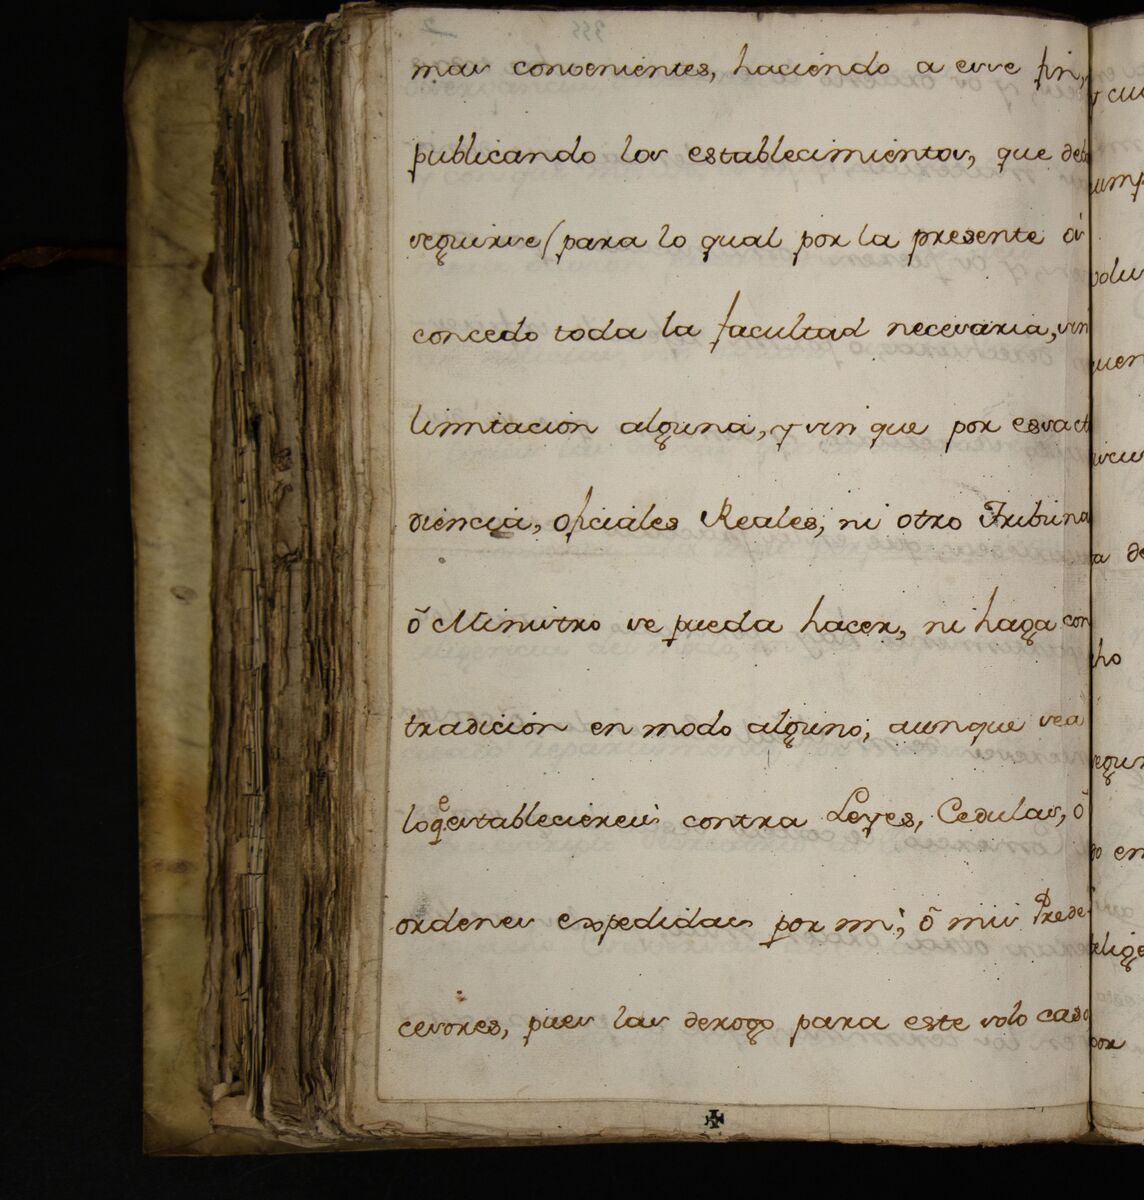 mas convenientes, haciendo a esse fin,
publicando los establecimientos, que deb
seguirse (para lo qual por la presente ôs
concedo toda la facultad necesaria, sin
limitacion alguna, y sin que por essa ct
diencia, Oficiales Reales, ni otro Tribuna
ô Ministro se pueda hacer, ni haga con
tradicion en modo alguno, aunque sea
lo qe estableciereis contra Leyes, Cedulas, ô
ordenes expedidas por mi, ô mis Prede-
cesores, pues las derogo para este solo caso